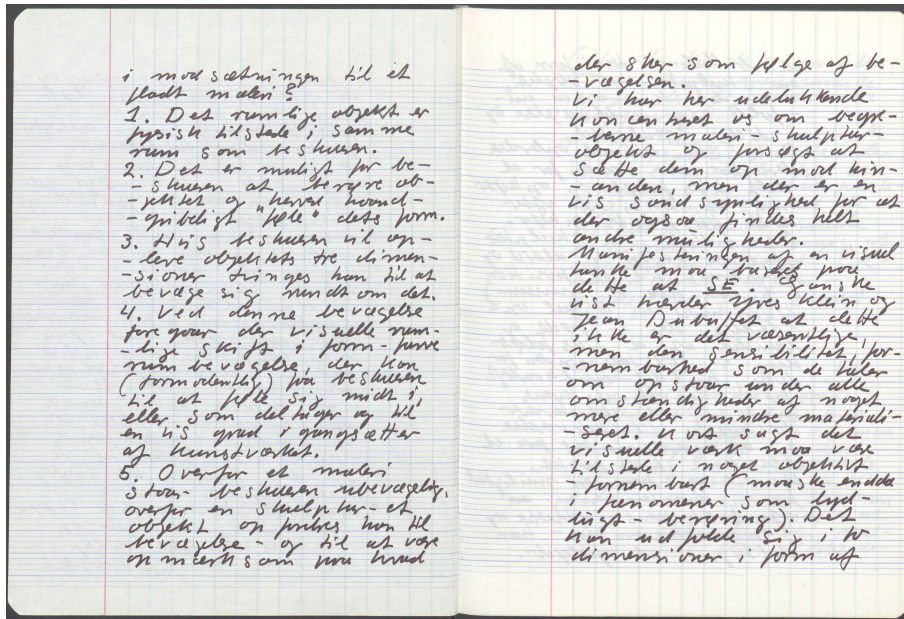 i modsætningen til et
fladt maleri?
1. Det rumlige objekt er
fysisk tilstede i samme
rum som beskueren.
2. Det er muligt for be-
-skueren at berøre ob-
-jektet og "herved haand-
-gribeligt "føle" dets form.
3. Hvis beskueren vil op-
-leve objektets tre dimen-
-sioner tvinges han til at
bevæge sig rundt om det.
4. Ved denne bevægelse
foregaar der visuelle rum-
-lige skift i form-farve
rum bevægelse, der kan
(formodentlig) faa beskueren
til at føle sig midt i,
eller som deltager og til
en vis grad igangsætter
af kunstværket.
5. Overfor et maleri
staar beskueren ubevægelig,
overfor en skulptur-et
objekt opfordres han til
bevægelse - og til at være
opmærksom paa hvad
der sker som følge af be-
-vægelsen.
Vi har her udelukkende
koncentreret os om begre-
-berne maleri-skulptur-
objekt og forsøgt at
sætte dem op mod hin-
-anden, men der er en
vis sandsynlighed for at
der ogsaa findes helt
andre muligheder.
Manifesteringen af en visuel
tanke maa baseres paa
dette at SE. Ganske
vist hævder Yves Klein og
Jean Dubuffet at dette
ikke er det væsentlige,
men den sensibilitet, for-
-nembarhed som de taler
om opstaar under alle
omstændigheder af noget
mere eller mindre materiali-
-seret. Kort sagt det
visuelle værk maa være
tilstede i noget objektivt
-fornembart (maaske endda
i fænomener som lyd-
lugt - berøring). Det
kan udfolde sig i to
dimensioner i form af